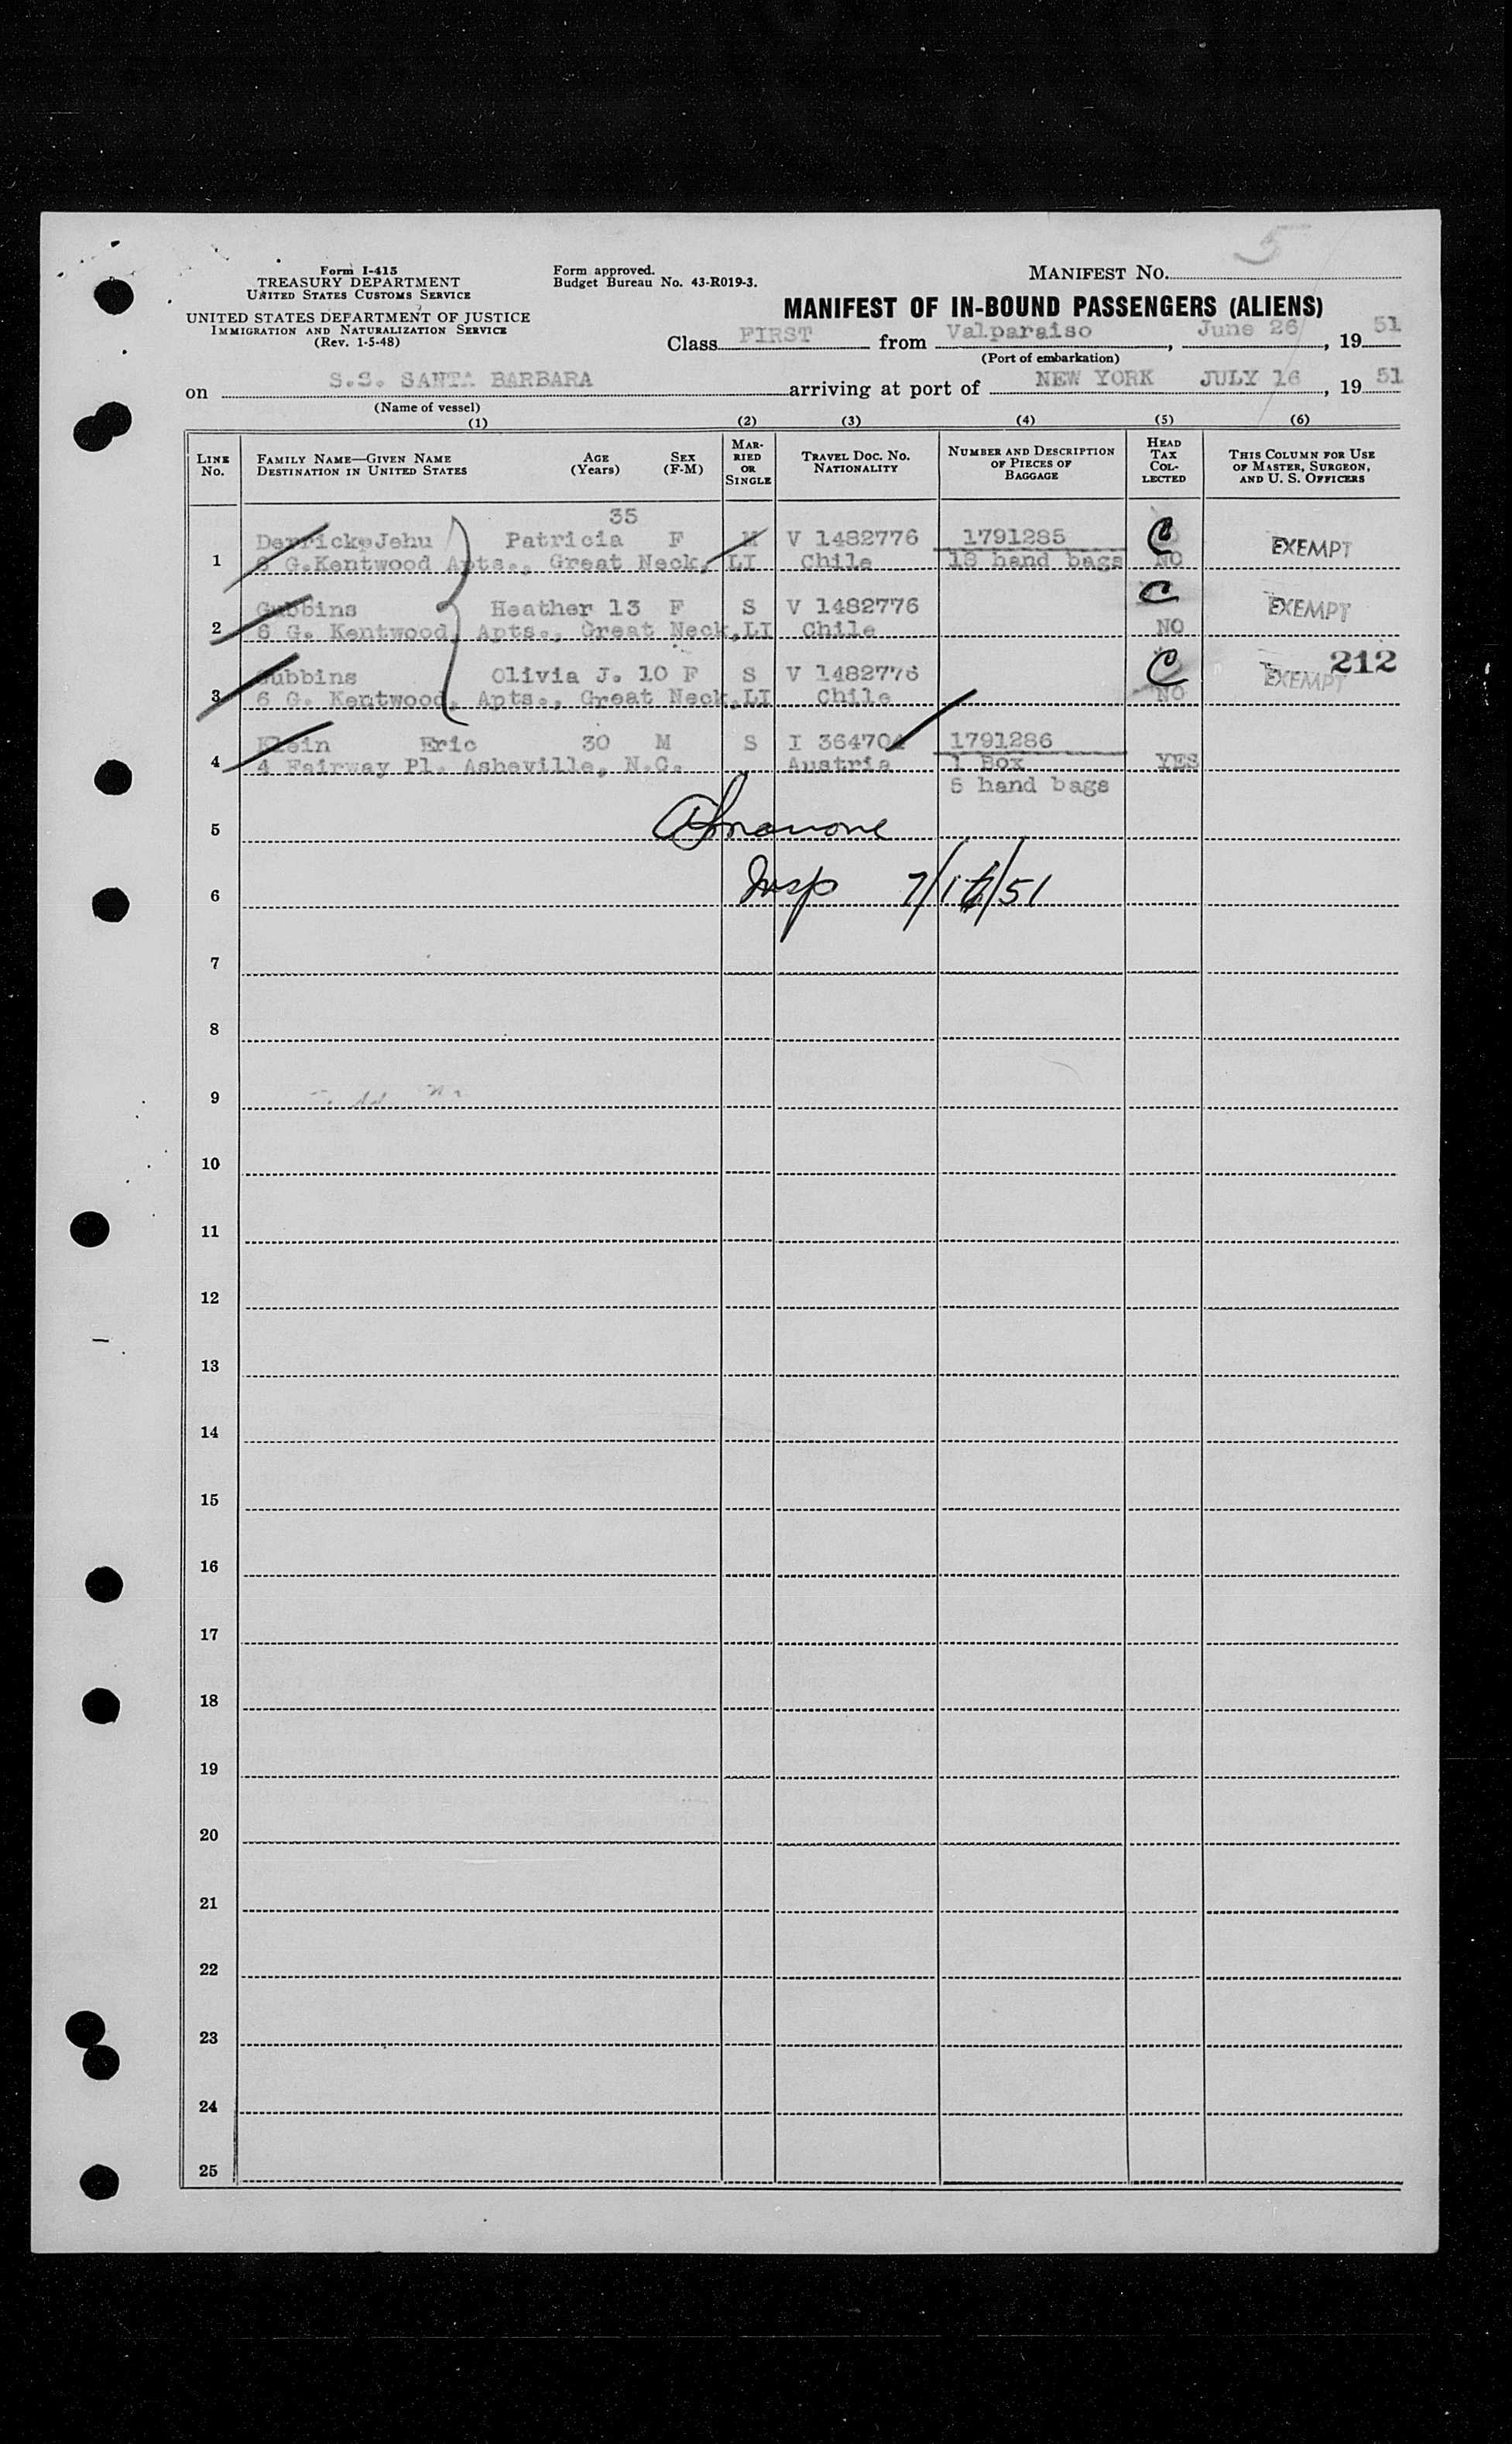 5
Form I-415
TREASURY DEPARTMENT
UNITED STATES CUSTOMS SERVICE
UNITED STATES DEPARTMENT OF JUSTICE
IMMIGRATION AND NATURALIZATION SERVICE
(Rev. 1-5-48)
Form approved.
Budget Bureau No. 43-R019-3.
MANIFEST NO.
MANIFEST OF IN-BOUND PASSENGERS (ALIENS)
Class FIRST from Valparaiso, June 26, 1951
(Port of embarkation)
on S.S. SANTA BARBARA arriving at port of NEW YORK JULY 16, 1951
(Name of vessel)
(1) (2) (3) (4) (5) (6)
LINE No. FAMILY NAME—GIVEN NAME DESTINATION IN UNITED STATES AGE (Years) SEX (F-M) MARRIED OR SINGLE TRAVEL DOC. NO. NATIONALITY NUMBER AND DESCRIPTION OF PIECES OF BAGGAGE HEAD TAX COLLECTED THIS COLUMN FOR USE OF MASTER, SURGEON, AND U. S. OFFICERS
35
Derrick-Jehu Patricia F M V 1482776 1791285 C EXEMPT
1 6 G.Kentwood Apts., Great Neck, LI Chile 18 hand bags NO
Gubbins Heather 13 F S V 1482776 C EXEMPT
2 6 G. Kentwood, Apts., Great Neck, LI Chile NO
Gubbins Olivia J. 10 F S V 1482776 C EXEMPT 212
3 6 G. Kentwood, Apts., Great Neck, LI Chile NO
Klein Eric 30 M S I 364704 1791286
4 4 Fairway Pl. Asheville, N.C. Austria 1 Box YES
5 hand bags
5
6 Insp 7/16/51
7
8
9
10
11
12
13
14
15
16
17
18
19
20
21
22
23
24
25